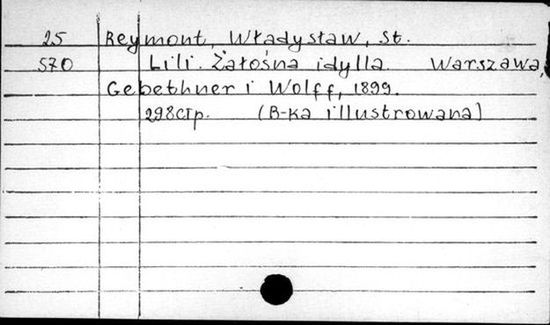 25 Reymont, Władysław, St.
570 Lili. Żałośna idylla. Warszawa,
Gebethner i Wolff, 1899.
298стр. (B-ka illustrowana)